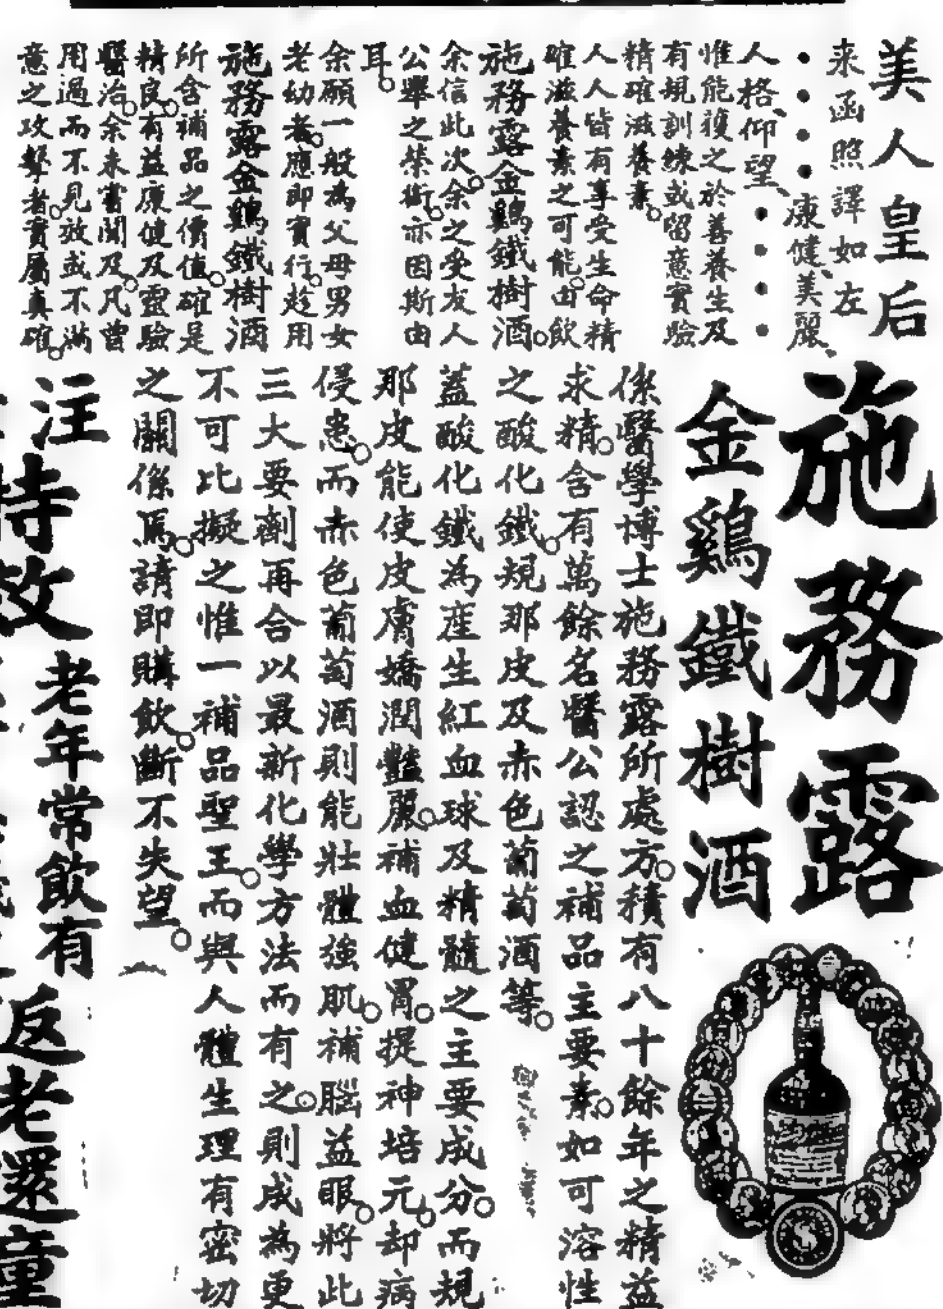 美人皇后
來函照譯如左
・・・・康健、美麗、
人格、仰望、・・・・
惟能獲之於善養生及
有規訓練或留意實驗
精確滋養素。
人人皆有享受生命精
確滋養素之可能。由飲
施務露金鷄鐵樹酒。
余信此次余之受友人
公舉之榮銜。亦因斯由
耳。
余願一般為父母男女
老幼者。應即實行。趁用
施務露金鷄鐵樹酒
所含補品之價值。確是
精良。有益康健及靈驗
醫治。余未嘗聞及。凡曾
用過而不見效或不滿
意之攻聲者。實屬真確。
施務露
金鷄鐵樹酒
係醫學博士施務露所處方。積有八十餘年之精益
求精。含有萬餘名醫公認之補品主要素。如可溶性
之酸化鐵。規那皮及赤色葡萄酒等。
蓋酸化鐵為產生紅血球及精髓之主要成分。而規
那皮能使皮膚嬌潤豔麗。補血健胃。提神培元。却病
侵患。而赤色葡萄酒則能壯體強肌。補腦益眼。將此
三大要劑再合以最新化學方法而有之。則成為更
不可比擬之惟一補品聖王。而與人體生理有密切
之關係焉。請即購飲。斷不失望。
注
老年常飲有返老還童
特效